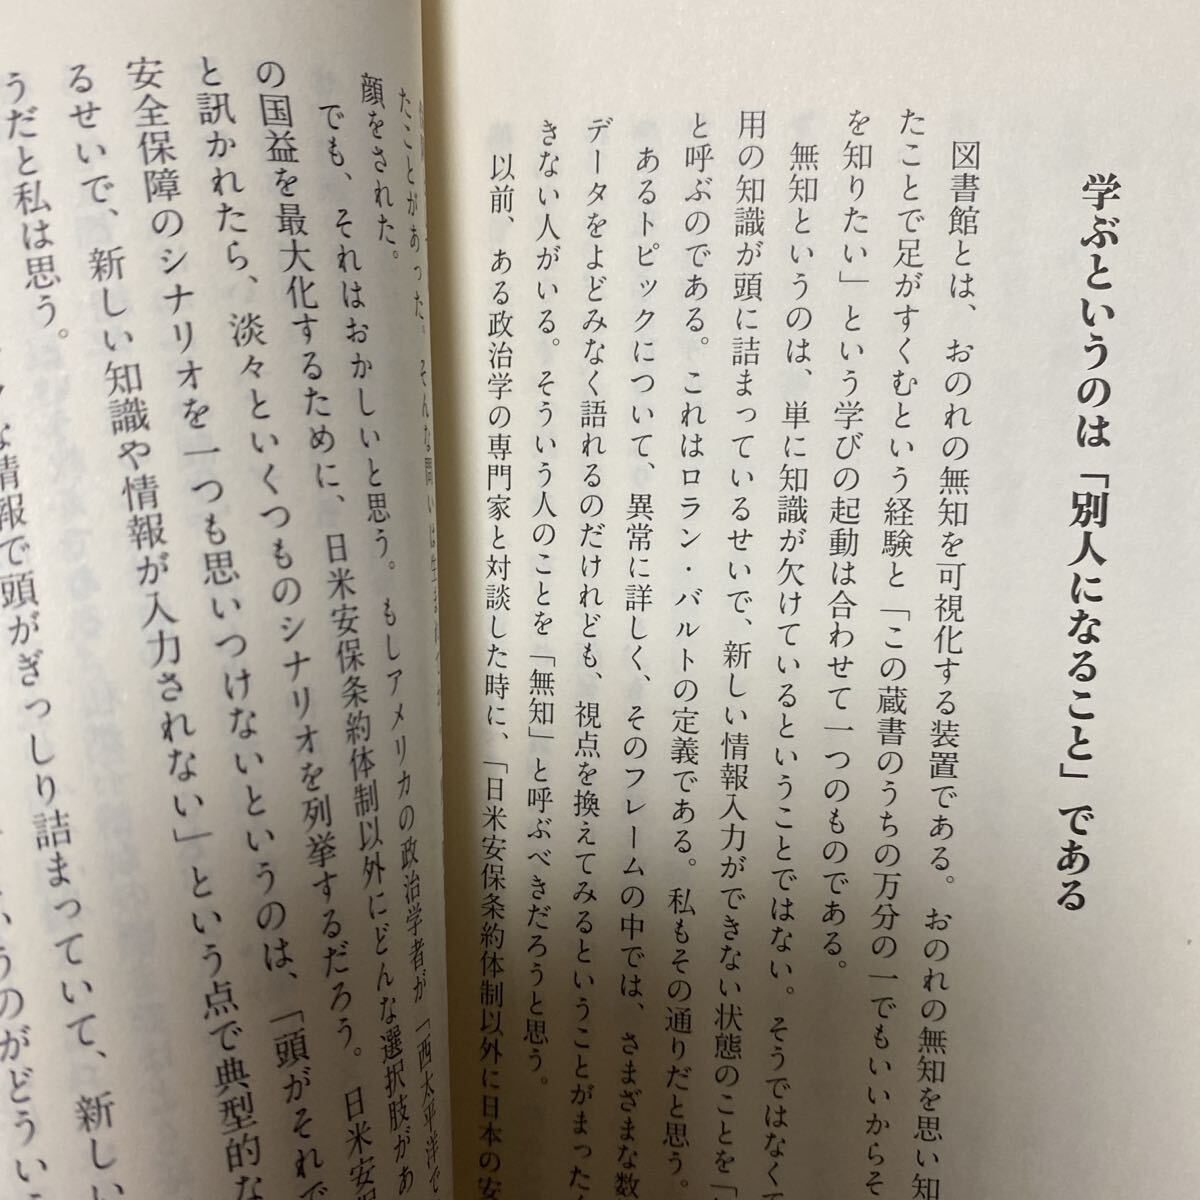 学ぶというのは「別人になること」である
図書館とは、おのれの無知を可視化する装置である。おのれの無知を思い知
たことで足がすくむという経験と「この蔵書のうちの万分の一でもいいからそ
を知りたい」という学びの起動は合わせて一つのものである。
無知というのは、単に知識が欠けているということではない。そうではなくて
用の知識が頭に詰まっているせいで、新しい情報入力ができない状態のことを「
と呼ぶのである。これはロラン・バルトの定義である。私もその通りだと思う。
あるトピックについて、異常に詳しく、そのフレームの中では、さまざまな数
データをよどみなく語れるのだけれども、視点を換えてみるということがまった
きない人がいる。そういう人のことを「無知」と呼ぶべきだろうと思う。
以前、ある政治学の専門家と対談した時に、「日米安保条約体制以外に日本の安
たことがあった。そんな問いは
顔をされた。
でも、それはおかしいと思う。もしアメリカの政治学者が、「西太平洋で
の国益を最大化するために、日米安保条約体制以外にどんな選択肢があ
と訊かれたら、淡々といくつものシナリオを列挙するだろう。日米安
安全保障のシナリオを一つも思いつけないというのは、「頭がそれで
るせいで、新しい知識や情報が入力されない」という点で典型的な
うだと私は思う。
な情報で頭がぎっしり詰まっていて、新しい
うのがどうい